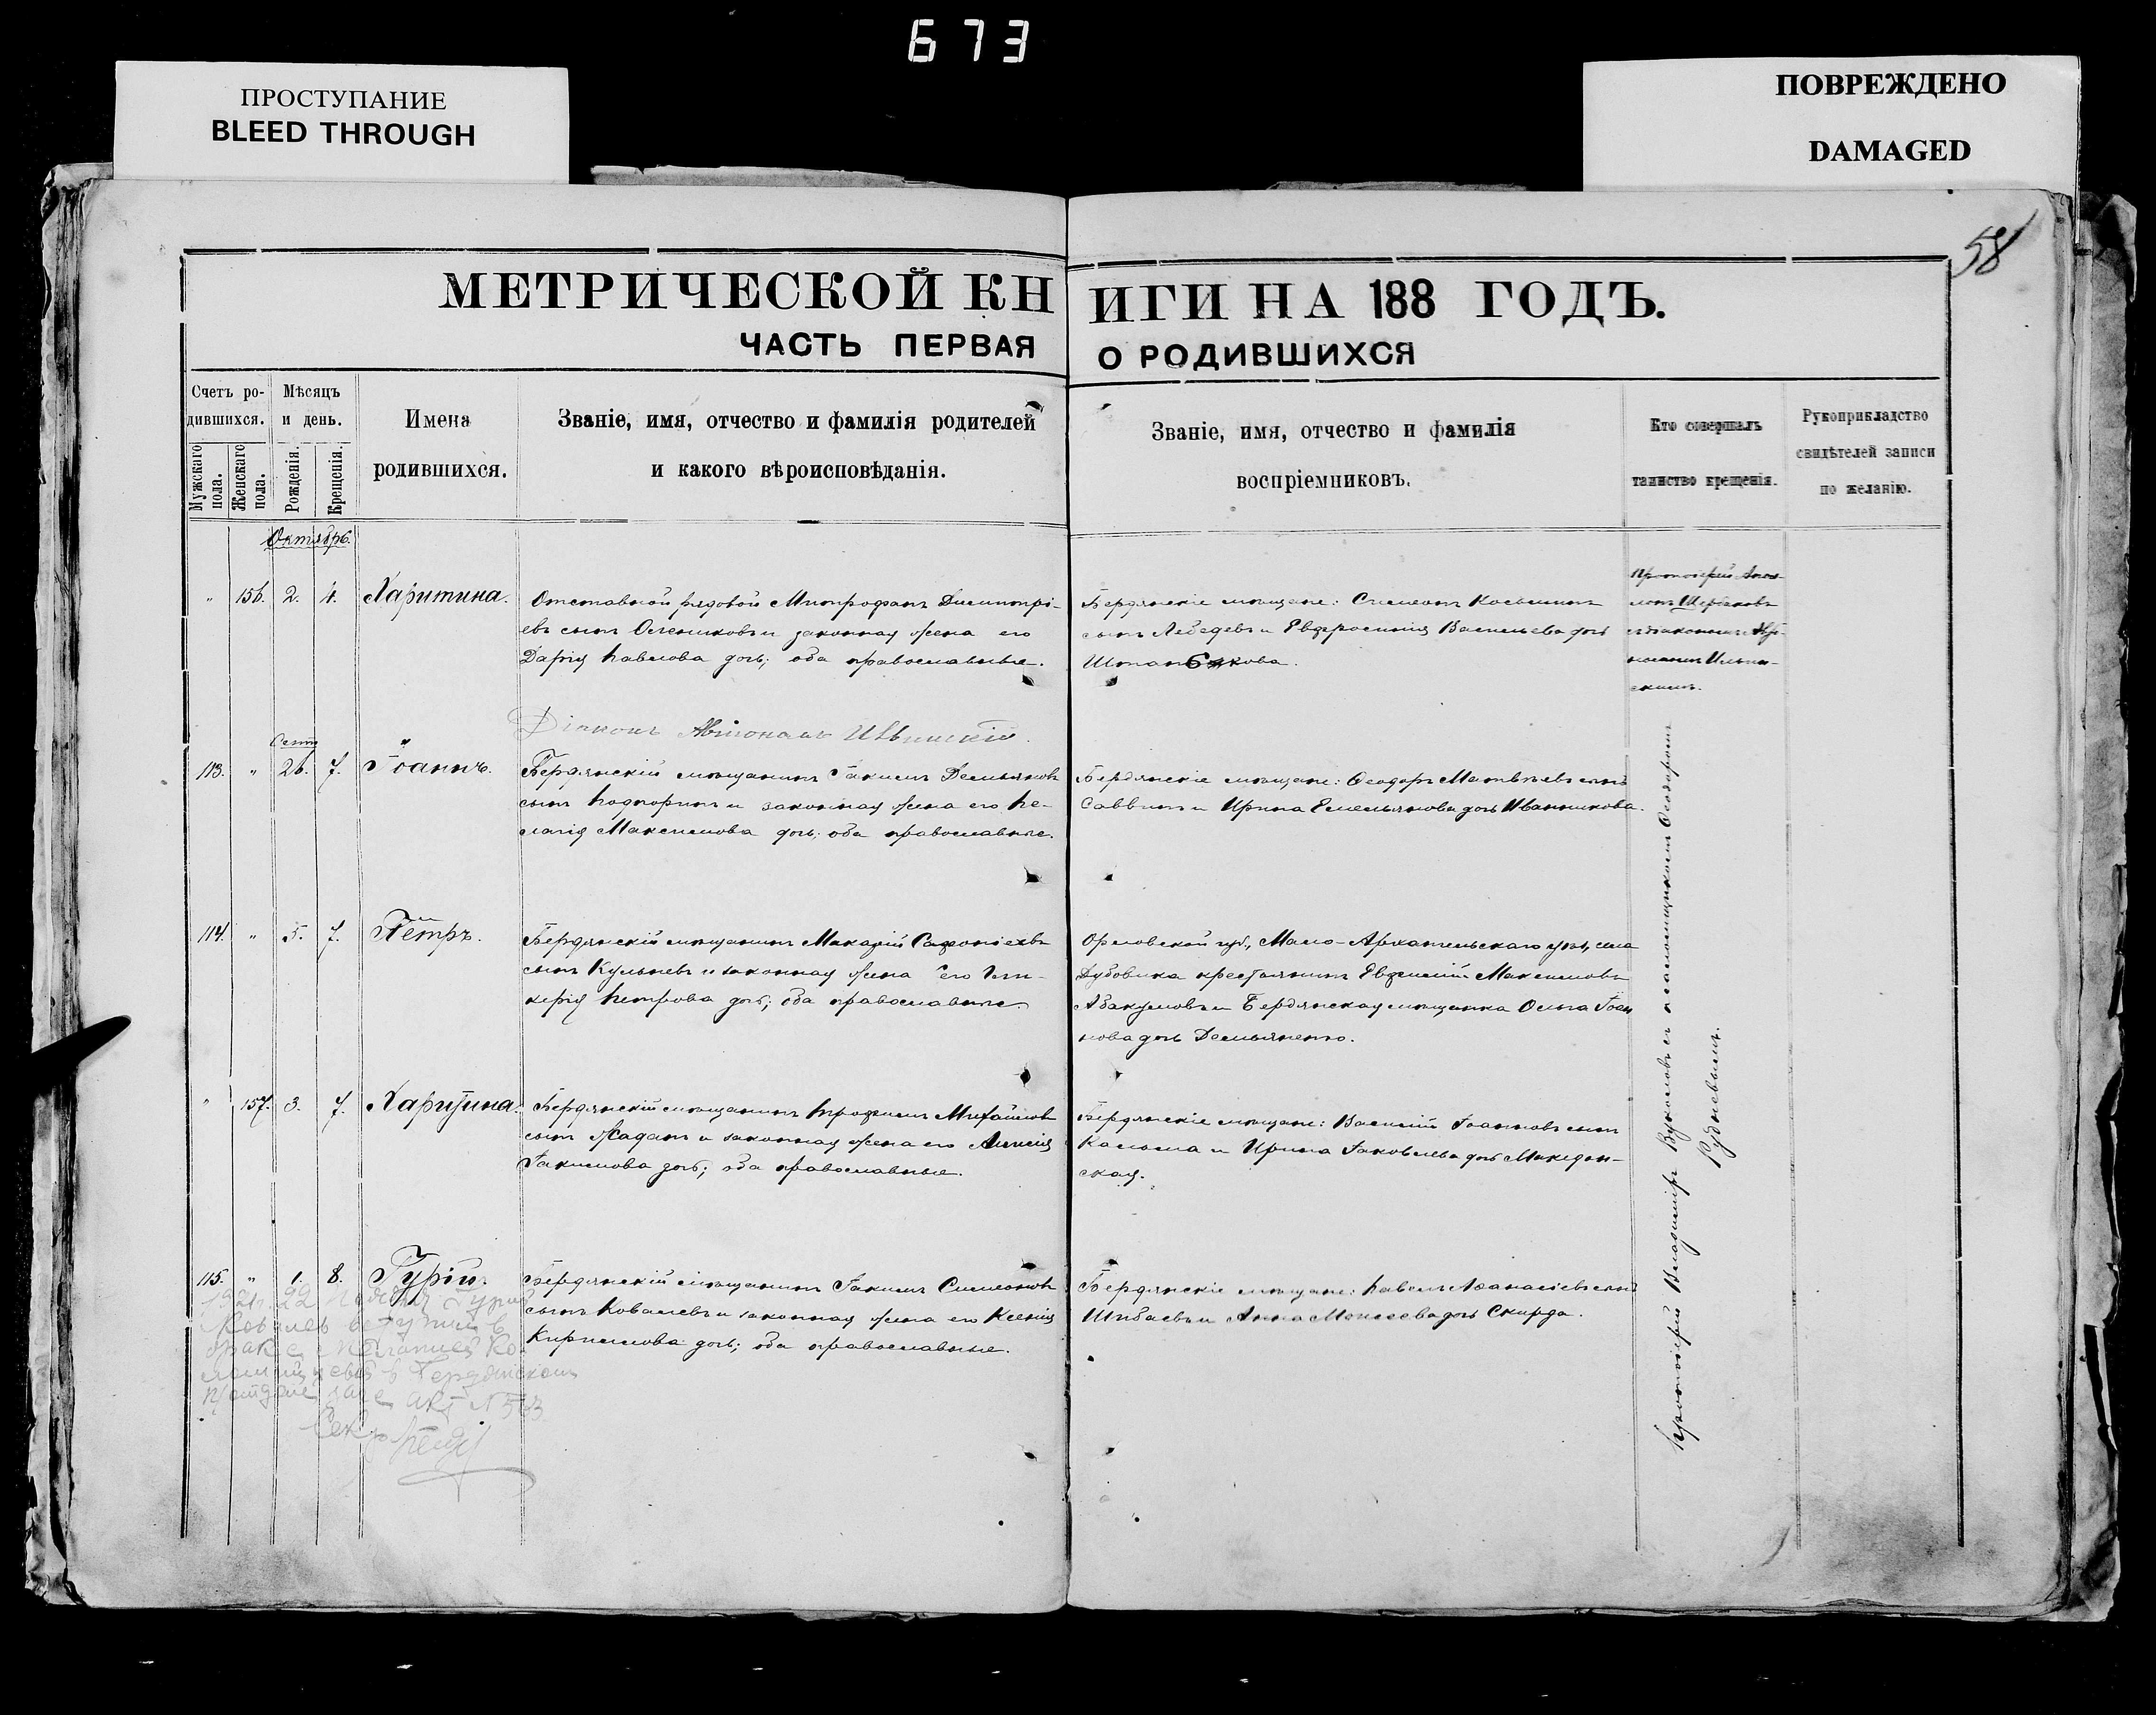 673
ПРОСТУПАНИЕ
BLEED THROUGH
ПОВРЕЖДЕНО
DAMAGED
58
МЕТРИЧЕСКОЙ КНИГИ НА 188 ГОДЪ.
ЧАСТЬ ПЕРВАЯ О РОДИВШИХСЯ
Счетъ ро-
дившихся.
Мужскаго пола.
Женскаго пола.
Мѣсяцъ
и день.
Рожденія.
Крещенія.
Имена
родившихся.
Званіе, имя, отчество и фамилія родителей
и какого вѣроисповѣданія.
Званіе, имя, отчество и фамилія
воспріемниковъ.
Кто совершалъ
таинство крещенія.
Рукоприкладство
свидѣтелей записи
по желанію.
Октябрь.
" 156. 2. 4. Харитина.
Отставной рядовой Митрофанъ Димитрі-
евъ сынъ и законная жена его
Дарія Павлова дочь; оба православные.
Бердянскіе мѣщане: Симеонъ Косьминъ
сынъ Лебедевъ и Евфросинія Васильева дочь
Протоіерей
съ діакономъ
Діаконъ Автономъ
Сент
113. " 26. 7. Іоаннъ.
Бердянскій мѣщанинъ Іакимъ Демьяновъ
сынъ и законная жена его Пе-
лагія Максимова дочь; оба православные.
Бердянскіе мѣщане: Ѳеодоръ Матвѣевъ сынъ
Саввинъ и Ирина Емельянова дочь Иванникова.
114. " 5. 7. Петръ.
Бердянскій мѣщанинъ Макарій
сынъ Кульневъ и законная жена его Гли-
керія Петрова дочь; оба православные.
Орловской губ., Мало-Архангельскаго уѣзда, села
Дубовика крестьянинъ Евфимій Максимовъ
Абакумовъ и Бердянская мѣщанка Ольга Іоан
нова дочь Демьяненко.
" 157. 3. 7. Харитина.
Бердянскій мѣщанинъ Трофимъ Михайловъ
сынъ Жаданъ и законная жена его
Іакимова дочь; оба православные.
Бердянскіе мѣщане: Василій Іоанновъ сынъ
Кальма и Ирина Іаковлева дочь Македон-
ская.
115. " 1. 8. Гурій.
Бердянскій мѣщанинъ Іакимъ Симеоновъ
сынъ Ковалевъ и законная жена его Ксенія
Кириллова дочь; оба православные.
Бердянскіе мѣщане: Павелъ Аѳанасіевъ сынъ
Шибаевъ и Анна Моисеева дочь Скирда.
Протоіерей Владиміръ Вуколовъ съ псаломщикомъ Ѳеодоромъ
Рудневымъ.